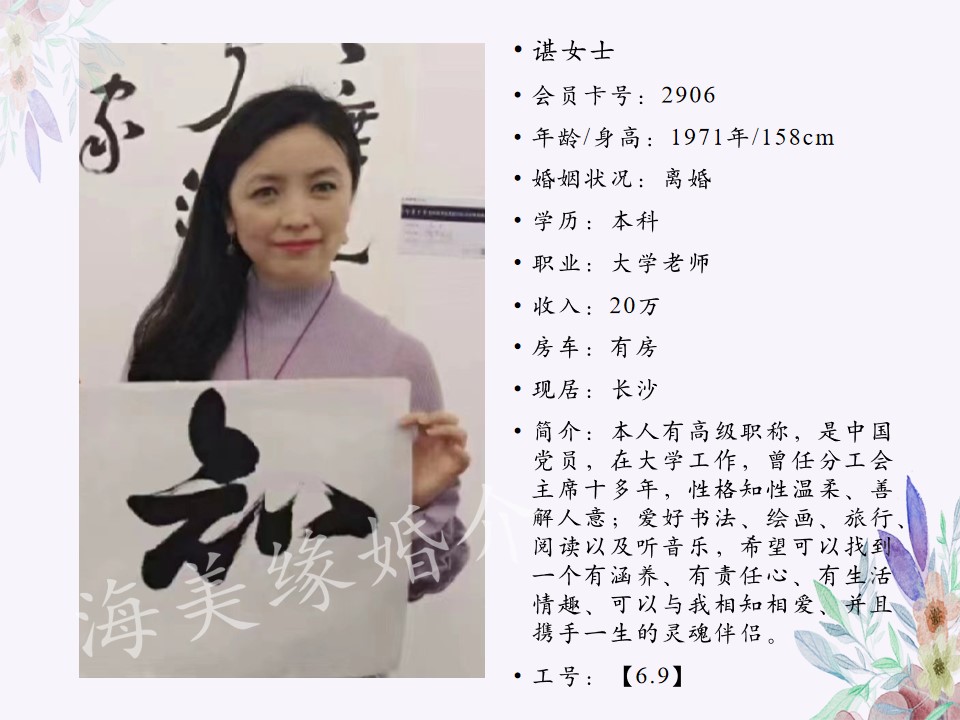 家
谌女士
会员卡号：2906
年龄/身高：1971年/158cm
婚姻状况：离婚
学历：本科
职业：大学老师
收入：20万
房车：有房
现居：长沙
简介：本人有高级职称，是中国
党员，在大学工作，曾任分工会
主席十多年，性格知性温柔、善
解人意；爱好书法、绘画、旅行、
阅读以及听音乐，希望可以找到
一个有涵养、有责任心、有生活
情趣、可以与我相知相爱、并且
携手一生的灵魂伴侣。
工号：【6.9】
海美缘婚介